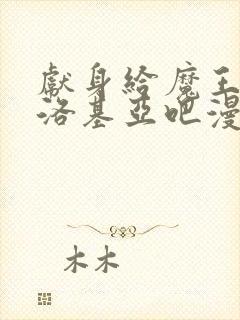 獻身給魔王
洛基亞吧漫
木木